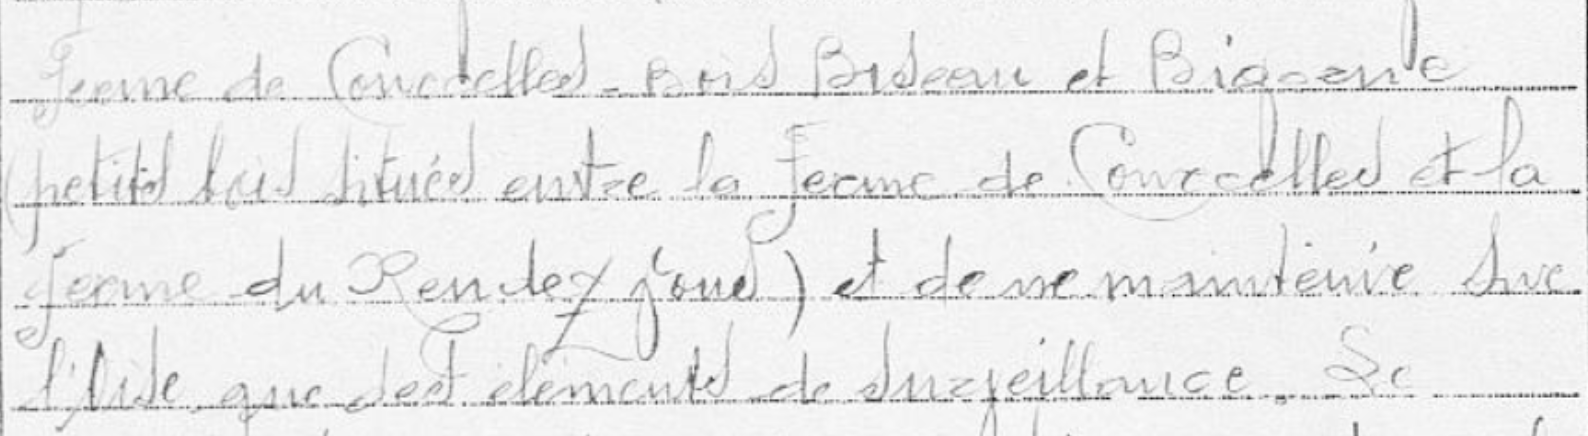 Ferme de Courcelles - Bois Buseau et Bigerne
(petits bois situés entre la Ferme de Courcelles et la
Ferme du Rendez Vous) et de ne maintenir sur
l'Oise que des éléments de surveillance. Le